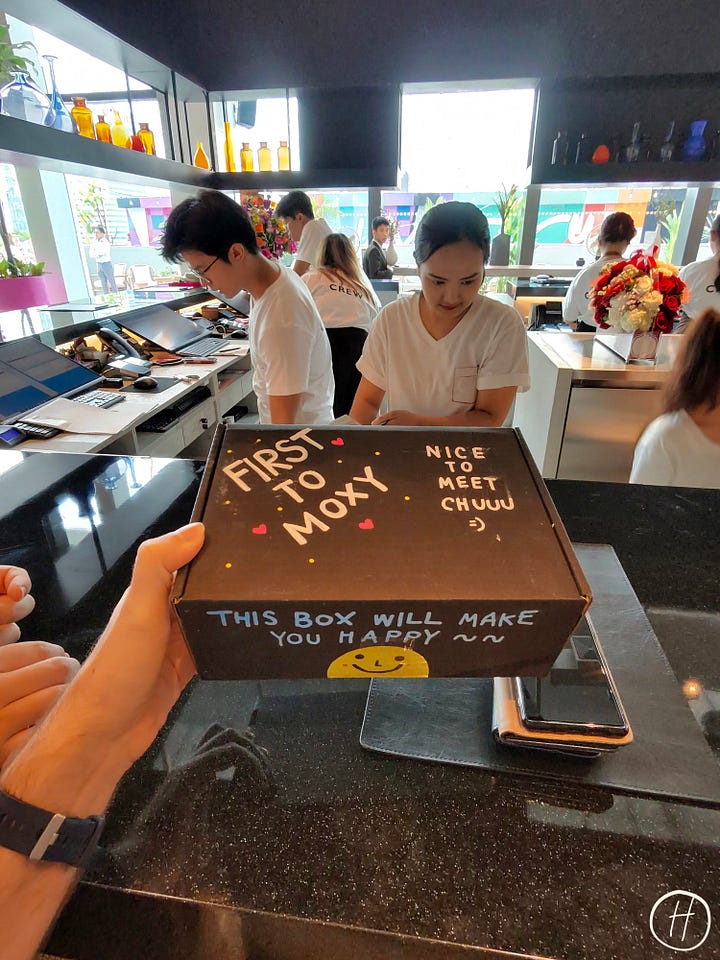 CREW
FIRST
TO
MOXY
NICE
TO
MEET
CHUUU
=)
THIS BOX WILL MAKE
YOU HAPPY ~~
H